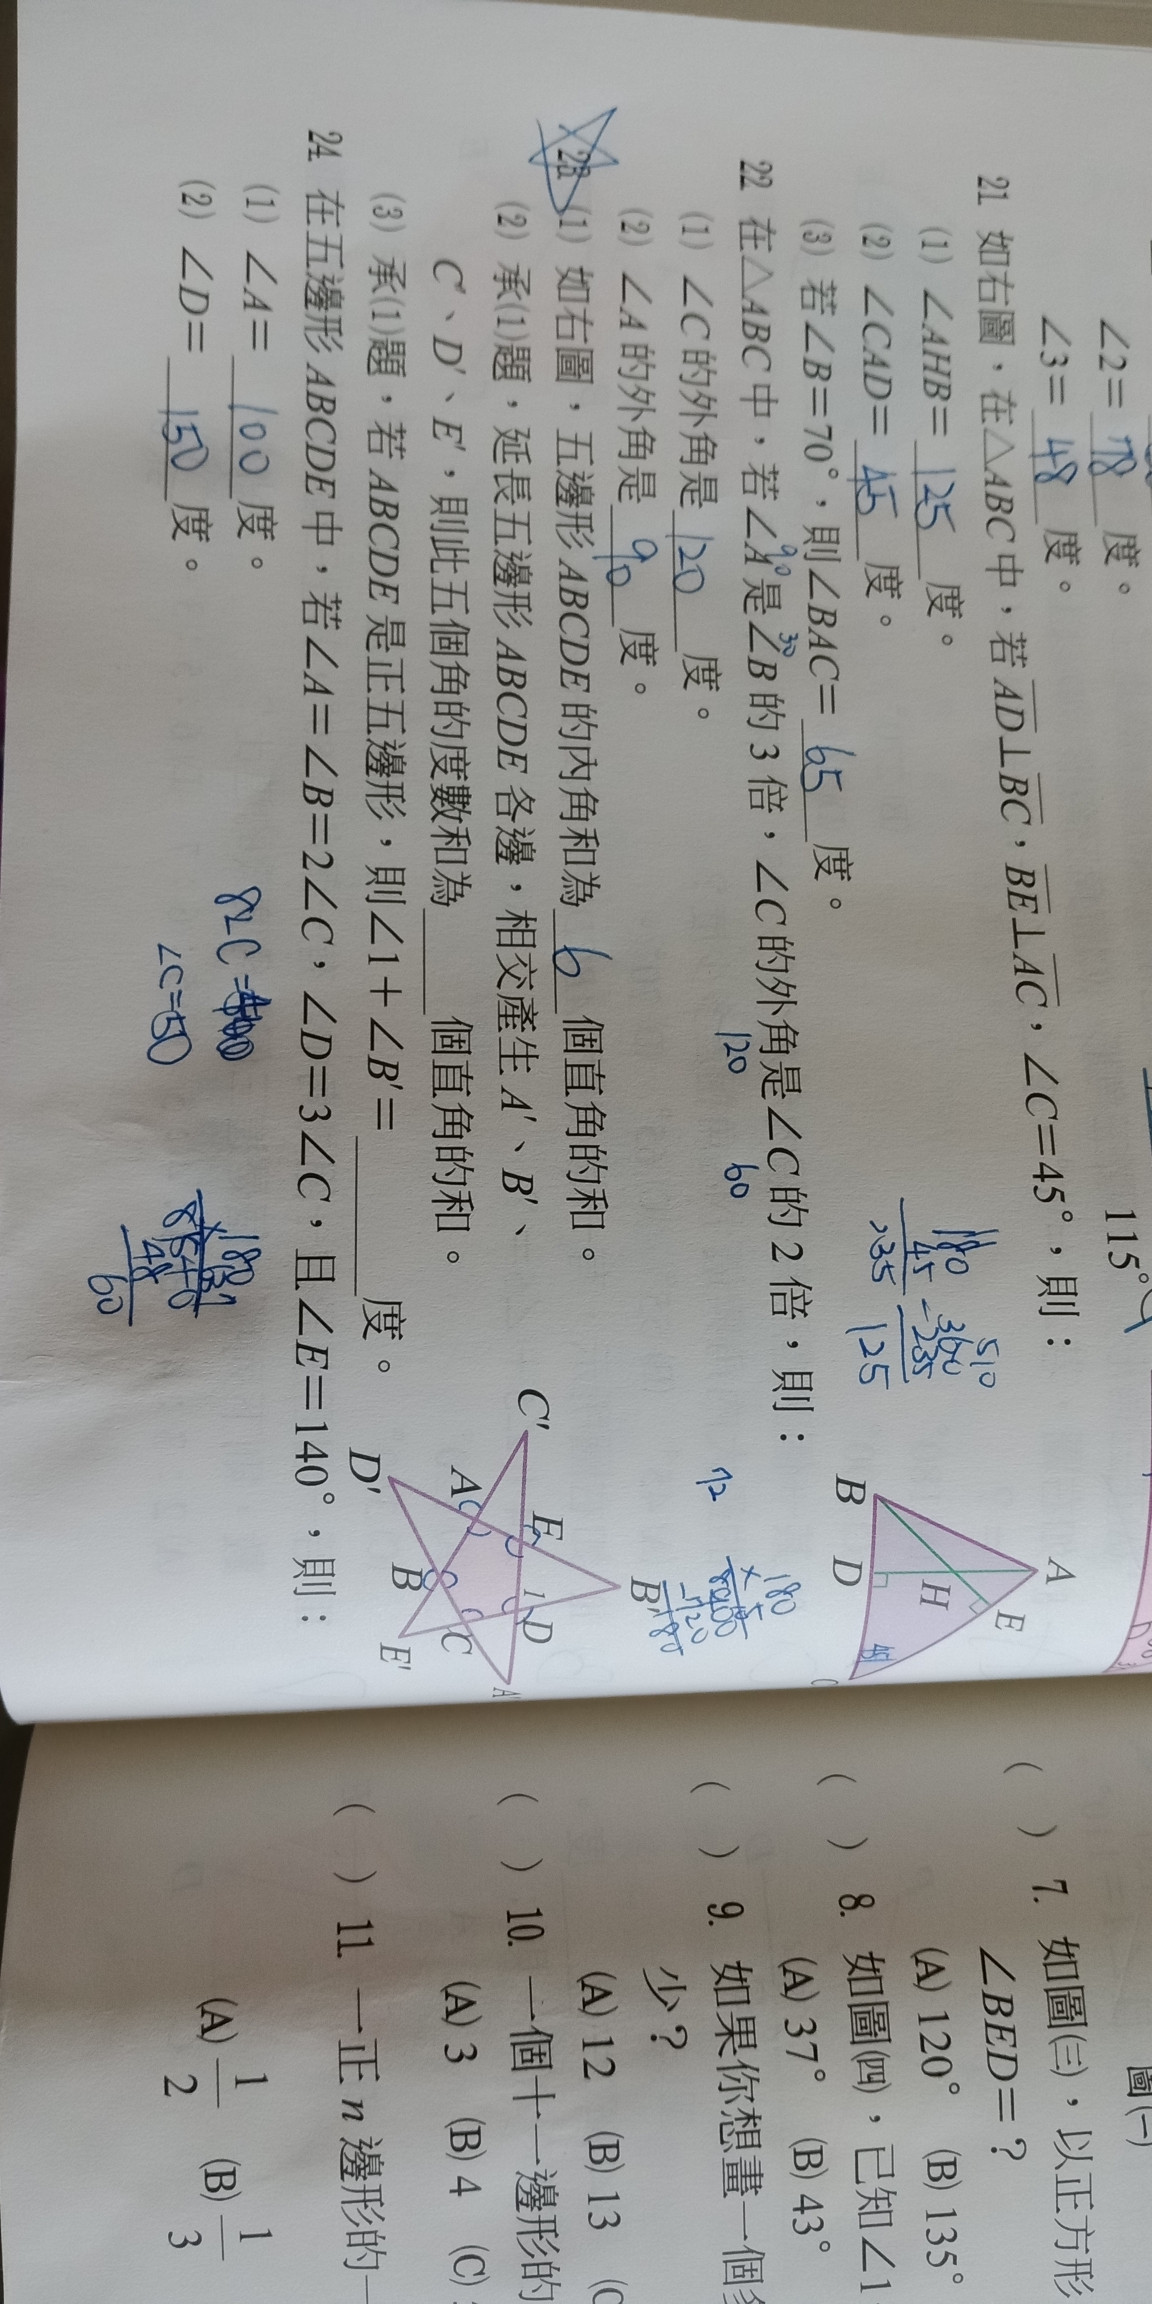 ∠2= 78 度。
∠3= 48 度。
115°
21 如右圖，在△ABC中，若AD⊥BC，BE⊥AC，∠C=45°，則：
(1) ∠AHB= 125 度。
(2) ∠CAD= 45 度。
(3) 若∠B=70°，則∠BAC= 65 度。
180
45
135
510
360
-235
125
A
B
D
H
E
C
45
22 在△ABC中，若∠A是∠B的3倍，∠C的外角是∠C的2倍，則：
90
30
120
60
(1) ∠C的外角是 120 度。
(2) ∠A的外角是 90 度。
72
180
× 5
900
-720
180
23 (1) 如右圖，五邊形ABCDE的內角和為 6 個直角的和。
(2) 承(1)題，延長五邊形ABCDE各邊，相交產生A'、B'、
C'、D'、E'，則此五個角的度數和為 個直角的和。
(3) 承(1)題，若ABCDE是正五邊形，則∠1+∠B'= 度。
B'
C'
E
1
D
A'
A
C
D'
B
E'
24 在五邊形ABCDE中，若∠A=∠B=2∠C，∠D=3∠C，且∠E=140°，則：
(1) ∠A= 100 度。
(2) ∠D= 150 度。
8∠C=400
∠C=50
180
× 3
8 540
48
60
圖(一)
( ) 7. 如圖(三)，以正方形
∠BED=？
(A) 120° (B) 135°
( ) 8. 如圖(四)，已知∠1
(A) 37° (B) 43°
( ) 9. 如果你想畫一個多
少？
(A) 12 (B) 13 (C
( ) 10. 一個十一邊形的
(A) 3 (B) 4 (C)
( ) 11. 一正n邊形的一
(A) 1/2 (B) 1/3